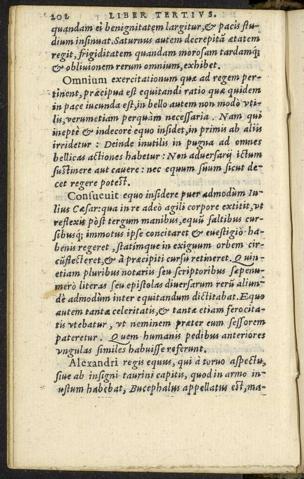 202 LIBER TERTIVS.
quandam ei benignitatem largitur, & pacis stu-
dium insinuat. Saturnus autem decrepitā ætatem
regit, frigiditatem quandam morosam tardamq́;
& obliuionem rerum omnium, exhibet.
Omnium exercitationum quæ ad regem per-
tinent, præcipua est equitandi ratio quæ quidem
in pace iucunda est, in bello autem non modò vti-
lis, verumetiam perquàm necessaria. Nam qui
ineptè & indecorè equo insidet, in primis ab aliis
irridetur : Deinde inutilis in pugna ad omnes
bellicas actiones habetur : Non aduersarij ictum
sustinere aut cauere : nec equum suum sicut de-
cet regere potest.
Consueuit equo insidere puer admodùm Iu-
lius Cæsar: qua in re adeò agili corpore extitit, vt
reflexis pòst tergum manibus, equū saltibus cur-
sibusq́; immotus ipse concitaret & euestigiò ha-
benis regeret, statimque in exiguum orbem cir-
cūflecteret, & à præcipiti cursu retineret. Quin-
etiam pluribus notariis seu scriptoribus sæpenu-
merò literas seu epistolas diuersarum rerū alium-
dè admodùm inter equitandum dictitabat. Equo
autem tantæ celeritatis, & tantæ etiam ferocita-
tis vtebatur, vt neminem præter eum sessorem
pateretur. Quem humanis pedibus anteriores
vngulas similes habuisse referunt.
Alexandri regis equus, qui à toruo aspectu,
siue ab insigni taurini capitis, quod in armo in-
ustum habebat, Bucephalus appellatus est, ma-